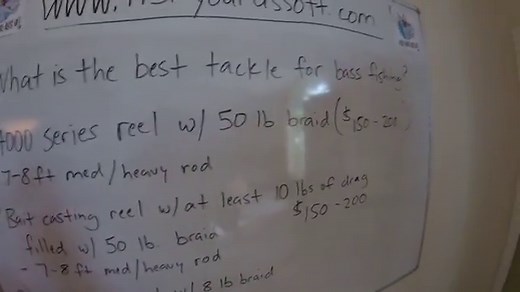 What is the best tackle for bass fishing?
4000 series reel w/ 50 lb braid ($150-200)
7-8ft med/heavy rod
Bait casting reel w/ at least 10 lbs of drag
$150-200
filled w/ 50 lb. braid
- 7-8 ft med/heavy rod
8 lb braid